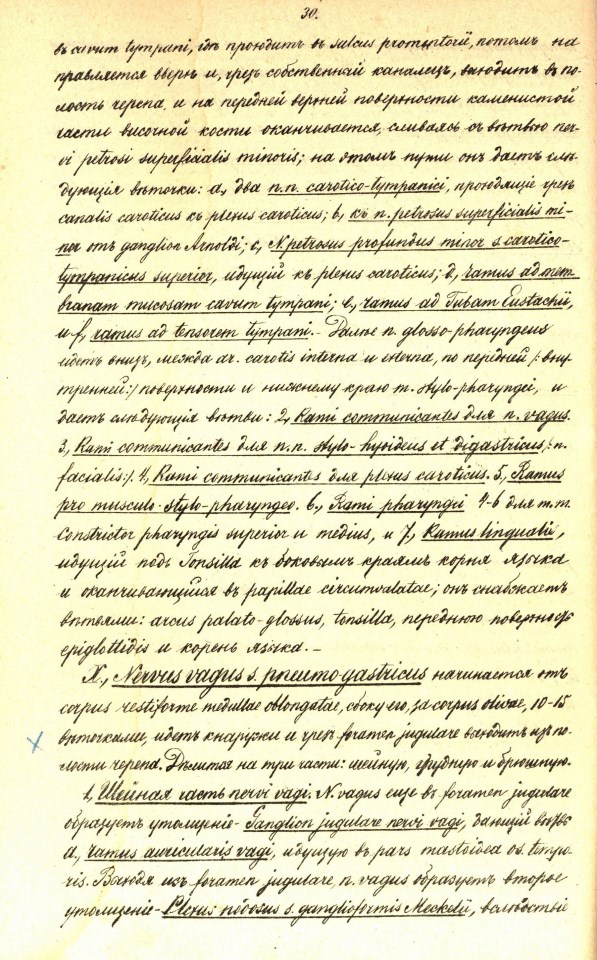 30.
въ cavum tympani, гдѣ проходитъ въ sulcus promontorii, потомъ на
правляется вверхъ и, чрезъ собственный каналецъ, выходитъ въ по-
лость черепа, и на передней верхней поверхности каменистой
части височной кости оканчивается, сливаясь съ вѣтвью ner-
vi petrosi superficialis minoris; на этомъ пути онъ даетъ слѣ-
дующія вѣточки: a, два n.n. carotico-tympanici, проходящіе чрезъ
canalis caroticus къ plexus caroticus; b, къ n. petrosus superficialis mi-
nor отъ ganglion Arnoldi; c, N. petrosus profundus minor s. carotico-
tympanicus superior, идущій къ plexus caroticus; d, ramus ad mem
branam mucosam cavum tympani; e, ramus ad Tubam Eustachii,
и f, ramus ad tensorem tympani. - Далѣе n. glosso-pharyngeus
идетъ внизъ, между ar. carotis interna и externa, по передней /:вну
тренней:/ поверхности и нижнему краю m. stylo-pharyngei, и
даетъ слѣдующія вѣтви: 2, Rami communicantes для n. vagus.
3, Rami communicantes для n.n. stylo-hyoideus et digastricus, /:n.
facialis:/. 4, Rami communicantes для plexus caroticus. 5, Ramus
pro musculo-stylo-pharyngeo. 6, Rami pharyngei 4-6 для m.m.
Constrictor pharyngis superior и medius, и 7, Ramus lingualis,
идущій подъ Tonsilla къ боковымъ краямъ корня языка
и оканчивающійся въ papillae circumvalatae; онъ снабжаетъ
вѣтвями: arcus palato-glossus, tonsilla, переднюю поверхность
epiglottidis и корень языка. -
X, Nervus vagus s. pneumo-gastricus начинается отъ
corpus restiforme medullae oblongatae, сбоку его, за corpus olivae, 10-15
вѣточками, идетъ кнаружи и чрезъ foramen jugulare выходитъ изъ по-
лости черепа. Дѣлится на три части: шейную, грудную и брюшную.
1, Шейная часть nervi vagi. N. vagus еще въ foramen jugulare
образуетъ утолщеніе - Ganglion jugulare nervi vagi, дающій вѣтвь
a, ramus auricularis vagi, идущую въ pars mastoidea os. tempo
ris. Выходя изъ foramen jugulare, n. vagus образуетъ второе
утолщеніе - Plexus nodosus s. ganglioformis Meckelii, вслѣдствіе